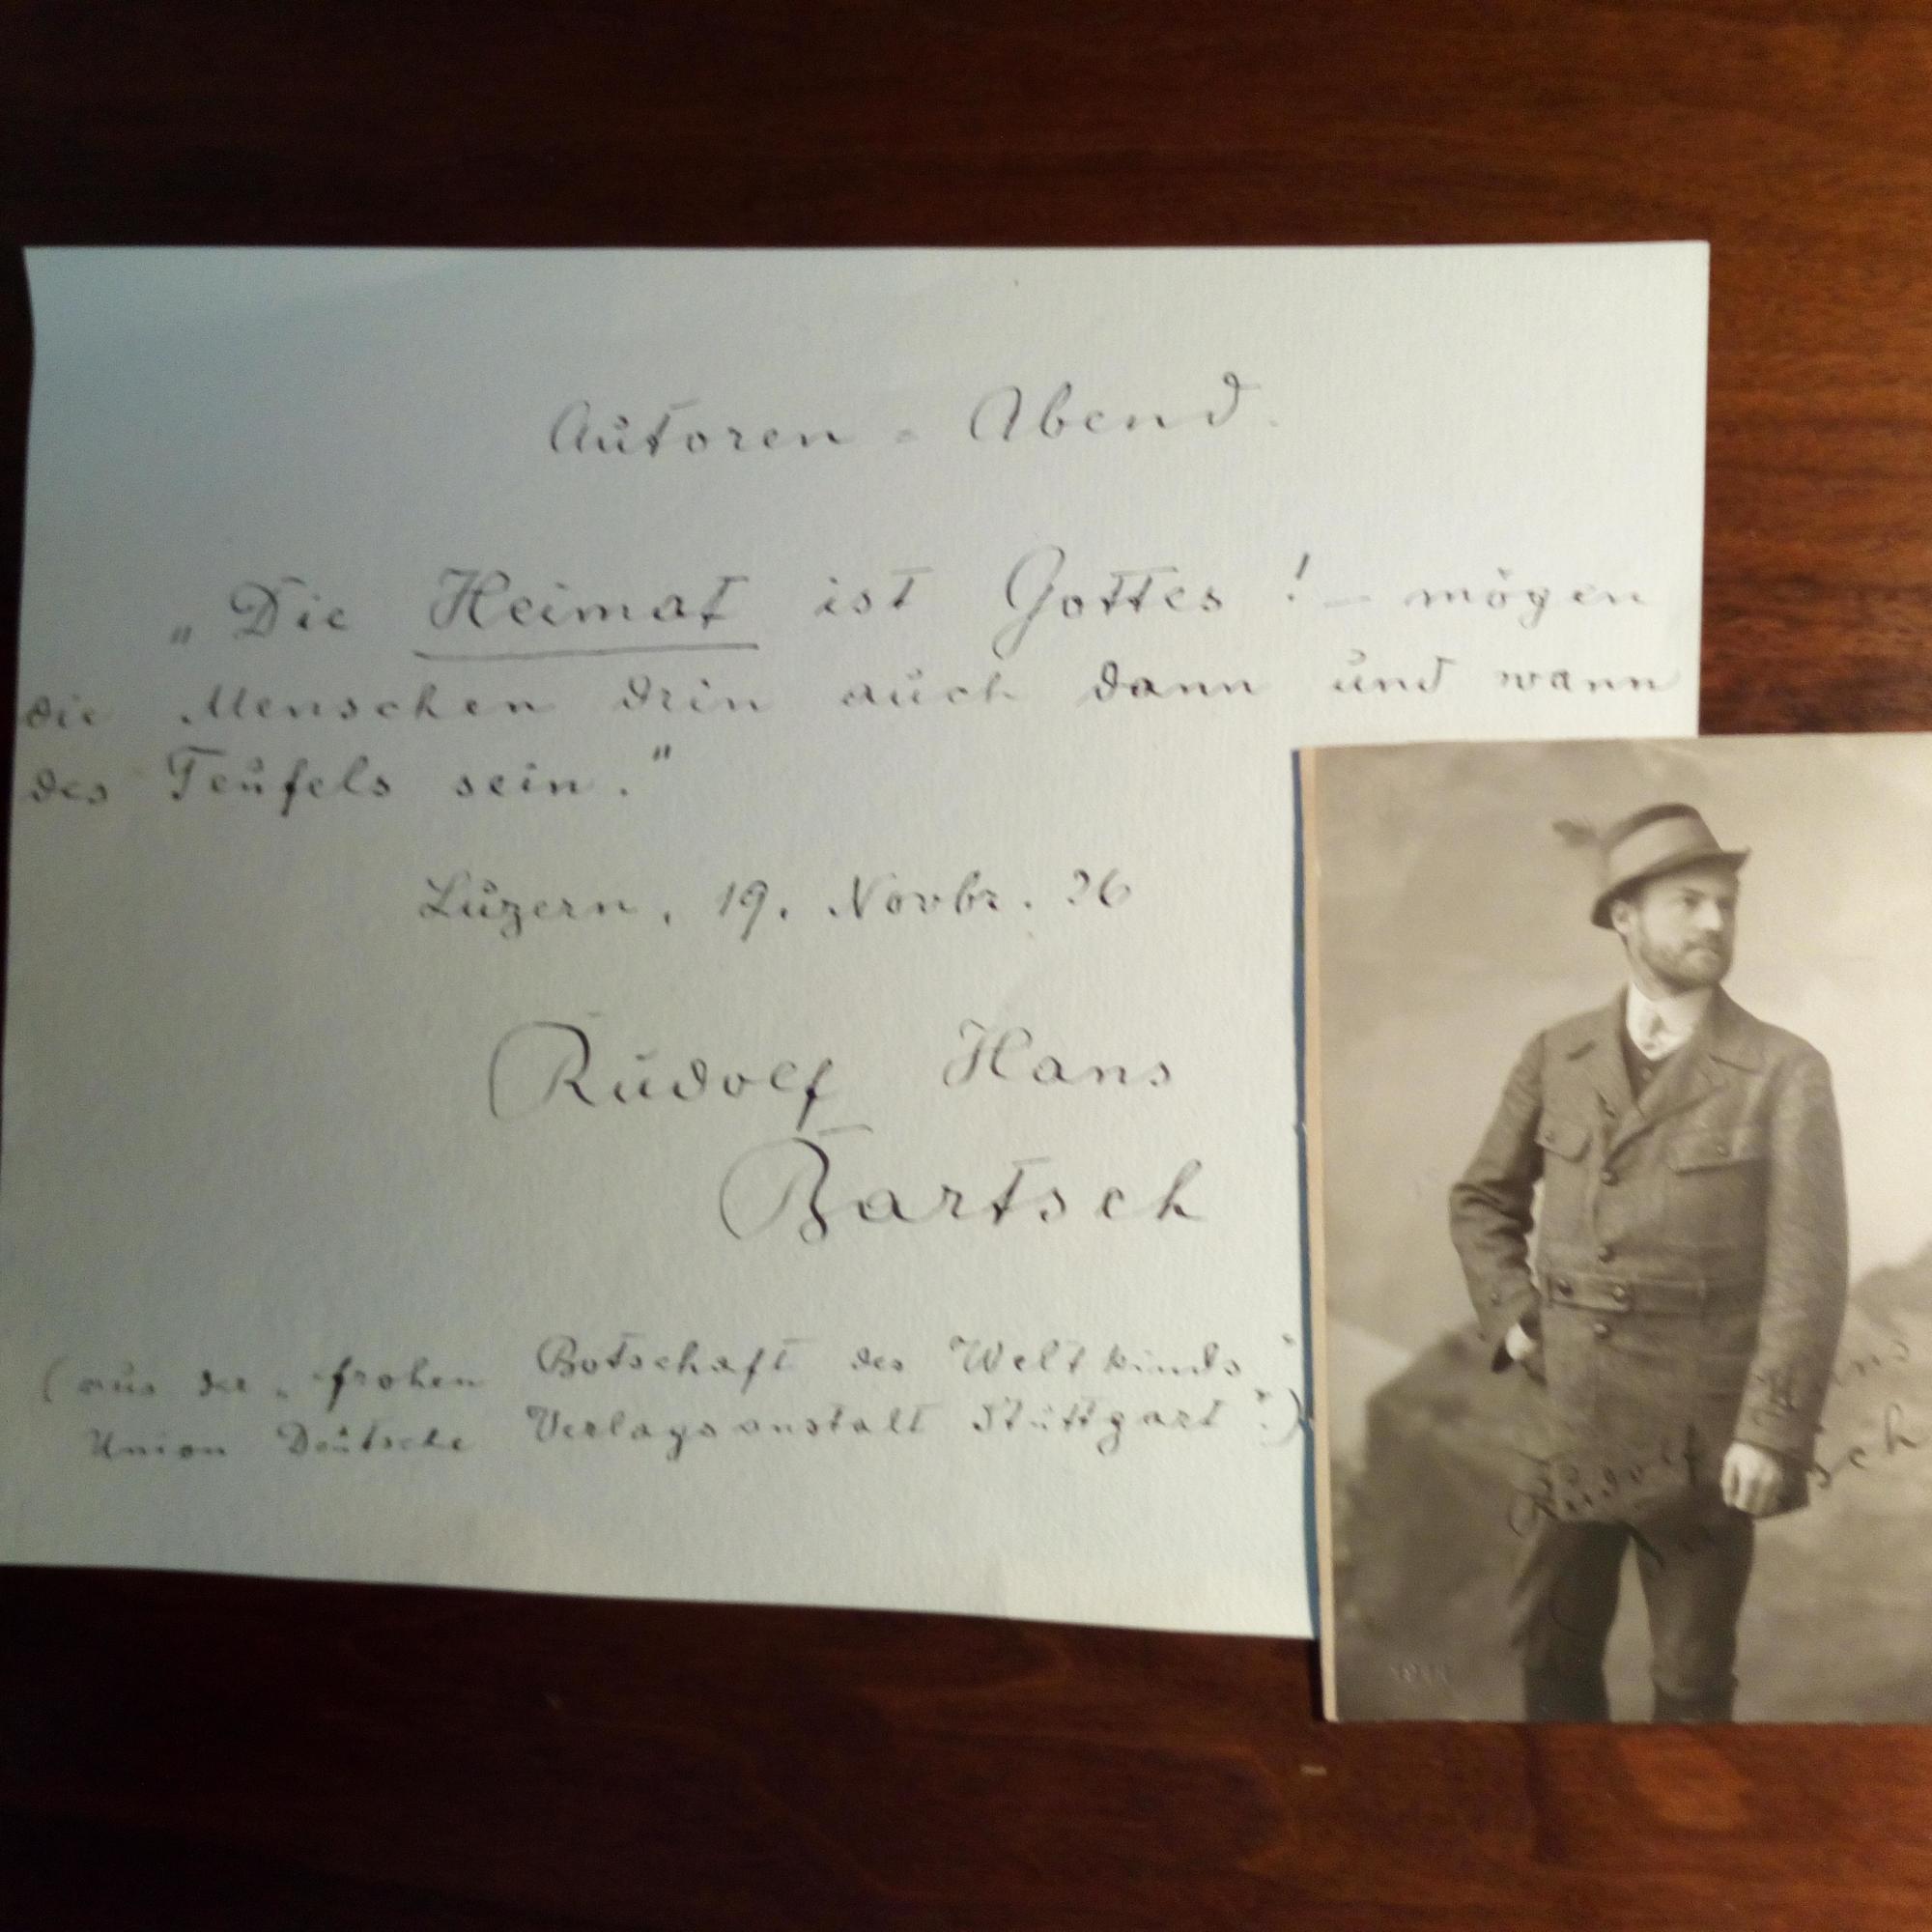 Autoren = Abend.
„Die Heimat ist Gottes! – mögen
die Menschen drin auch dann und wann
des Teufels sein."
Luzern, 19. Novbr. 26
Rudolf Hans
Bartsch
(aus der „frohen Botschaft des Weltkinds"
Union Deutsche Verlagsanstalt Stuttgart.)
Rudolf